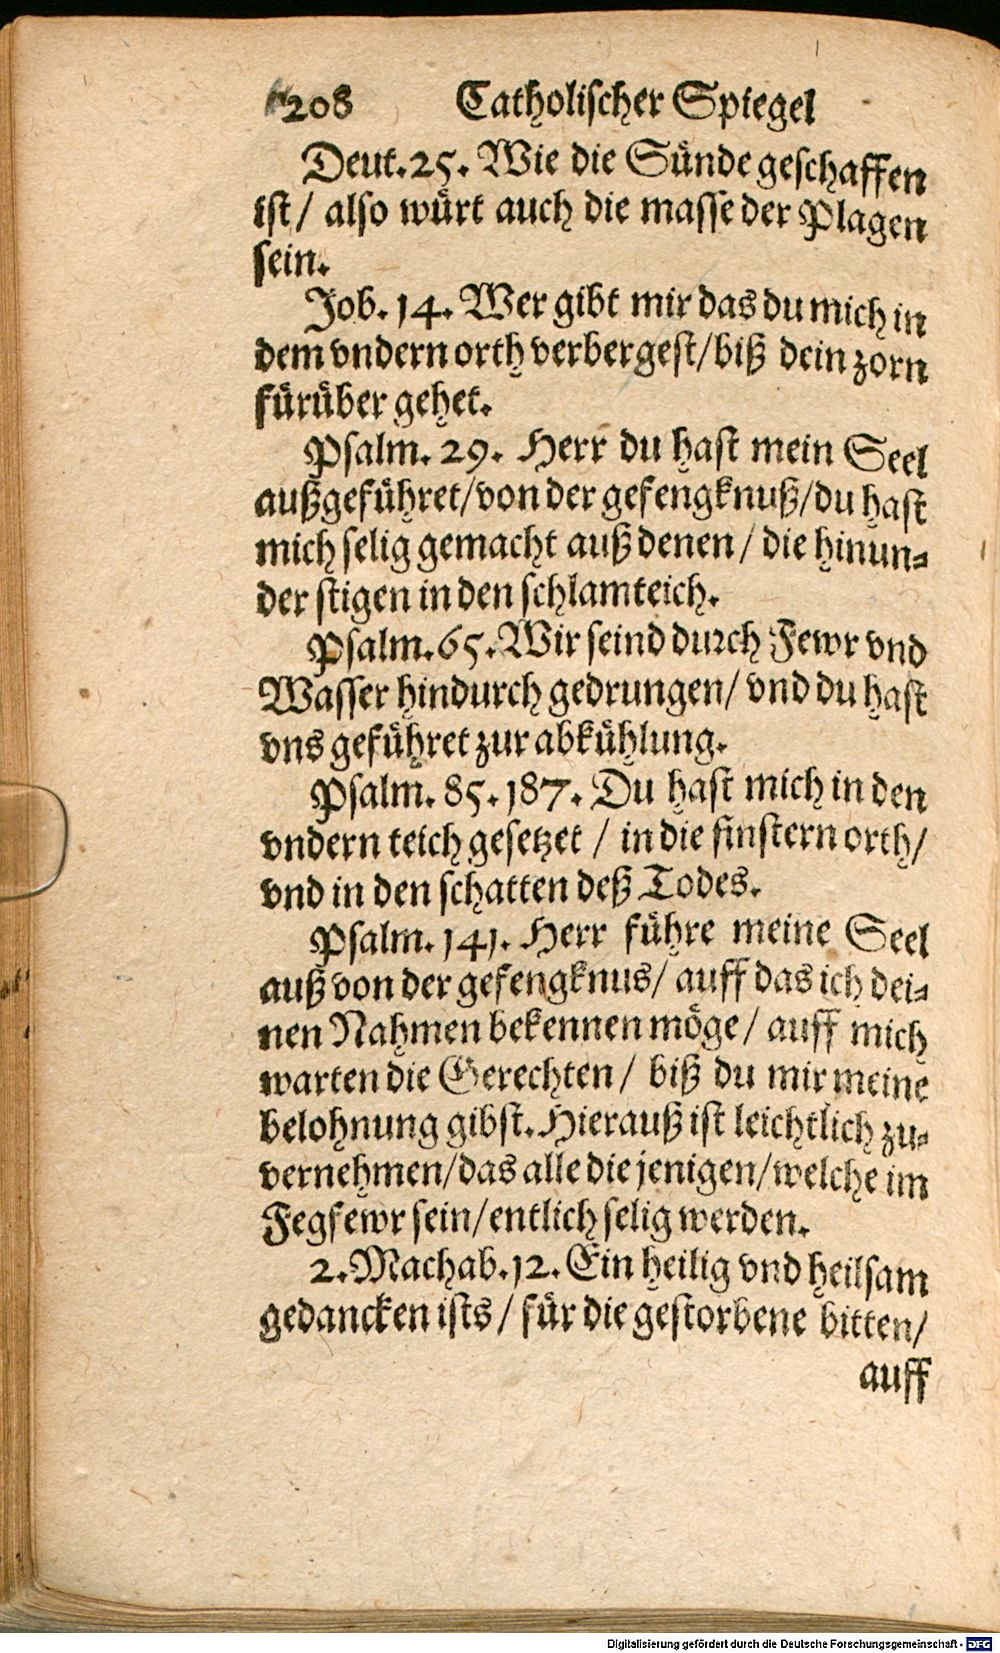 208 Catholischer Spiegel
Deut. 25. Wie die Sünde geschaffen
ist/ also würt auch die masse der Plagen
sein.
Job. 14. Wer gibt mir das du mich in
dem vndern orth verbergest/biß dein zorn
fürüber gehet.
Psalm. 29. Herr du hast mein Seel
außgeführet/von der gefengknuß/du hast
mich selig gemacht auß denen/ die hinun-
der stigen in den schlamteich.
Psalm. 65. Wir seind durch Fewr vnd
Wasser hindurch gedrungen/ vnd du hast
vns geführet zur abkühlung.
Psalm. 85. 187. Du hast mich in den
vndern teich gesetzet / in die finstern orth/
vnd in den schatten deß Todes.
Psalm. 141. Herr führe meine Seel
auß von der gefengknus/ auff das ich dei-
nen Nahmen bekennen möge/ auff mich
warten die Gerechten/ biß du mir meine
belohnung gibst. Hierauß ist leichtlich zu-
vernehmen/das alle die jenigen/welche im
Fegfewr sein/entlich selig werden.
2. Machab. 12. Ein heilig vnd heilsam
gedancken ists/ für die gestorbene bitten/
auff
Digitalisierung gefördert durch die Deutsche Forschungsgemeinschaft - DFG